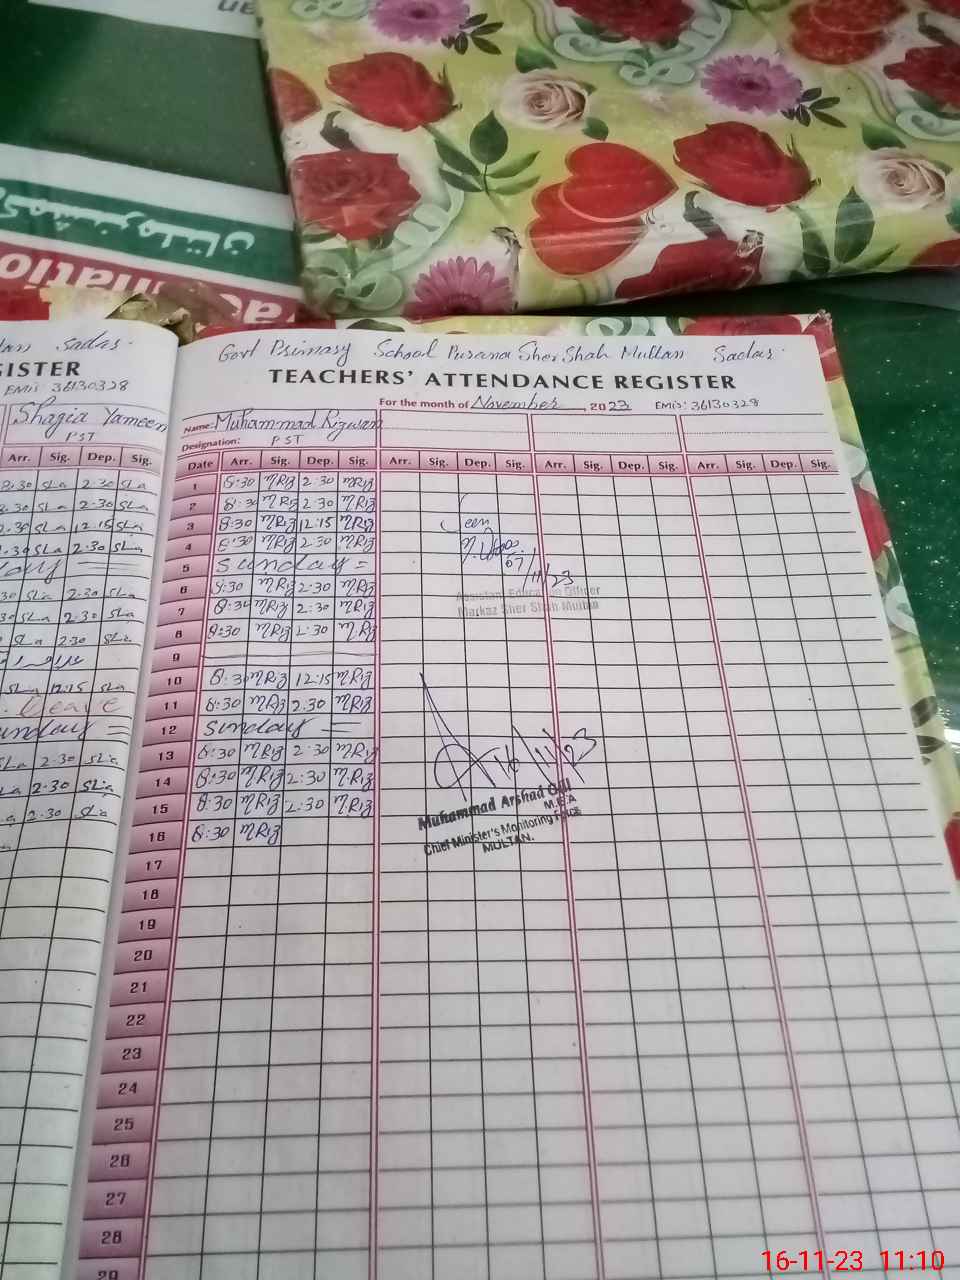 کمشنر ملتان
Sadar.
GISTER
EMis: 36130328
Shazia Yameen
PST
Arr. Sig. Dep. Sig.
8:30 SLa 2:30 SLa
8:30 SLa 2:30 SLa
SLa 12:15 SLa
SLa 2:30 SLa
SLa 2:30 SLa
SLa 2:30 SLa
SLa 2:30 SLa
SLa 12:15 SLa
Leave
Sunday =
SLa 2:30 SLa
2:30 SLa
2:30 SLa
Govt Primary School Purana Sher Shah Multan Sadar.
TEACHERS' ATTENDANCE REGISTER
For the month of November, 2023 EMis: 36130328
Name: Muhammad Rizwan
Designation: PST
Date Arr. Sig. Dep. Sig. Arr. Sig. Dep. Sig. Arr. Sig. Dep. Sig. Arr. Sig. Dep. Sig.
1 8:30 MRiz 2:30 MRiz
2 8:30 MRiz 2:30 MRiz
3 8:30 MRiz 12:15 MRiz
Seen
4 8:30 MRiz 2:30 MRiz
5 Sunday =
07/11/23
6 8:30 MRiz 2:30 MRiz
Assistant Education Officer
7 8:30 MRiz 2:30 MRiz
Markaz Sher Shah Multan
8 8:30 MRiz 2:30 MRiz
9
10 8:30 MRiz 12:15 MRiz
11 8:30 MRiz 2:30 MRiz
12 Sunday =
13 8:30 MRiz 2:30 MRiz
16/11/23
14 8:30 MRiz 2:30 MRiz
15 8:30 MRiz 2:30 MRiz
Muhammad Arshad
M.E.A
16 8:30 MRiz
Chief Minister's Monitoring Force
MULTAN.
17
18
19
20
21
22
23
24
25
26
27
28
29
16-11-23 11:10